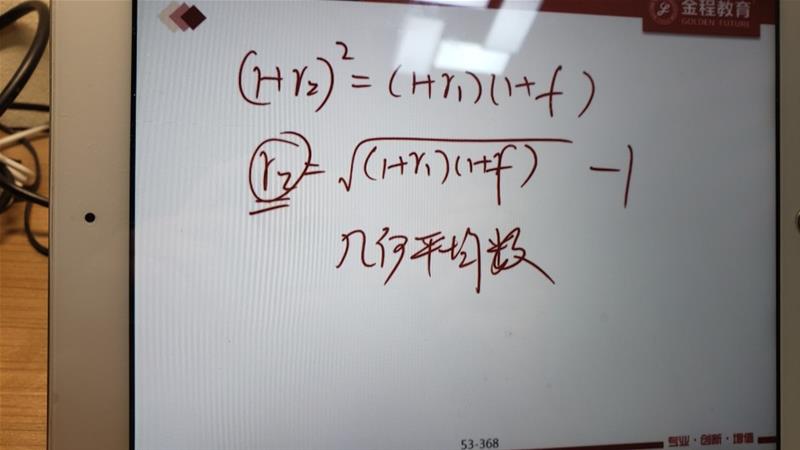 金程教育
GOLDEN FUTURE
(1+r₂)² = (1+r₁)(1+f)
r₂ = √(1+r₁)(1+f) - 1
几何平均数
53-368
专业·创新·增值